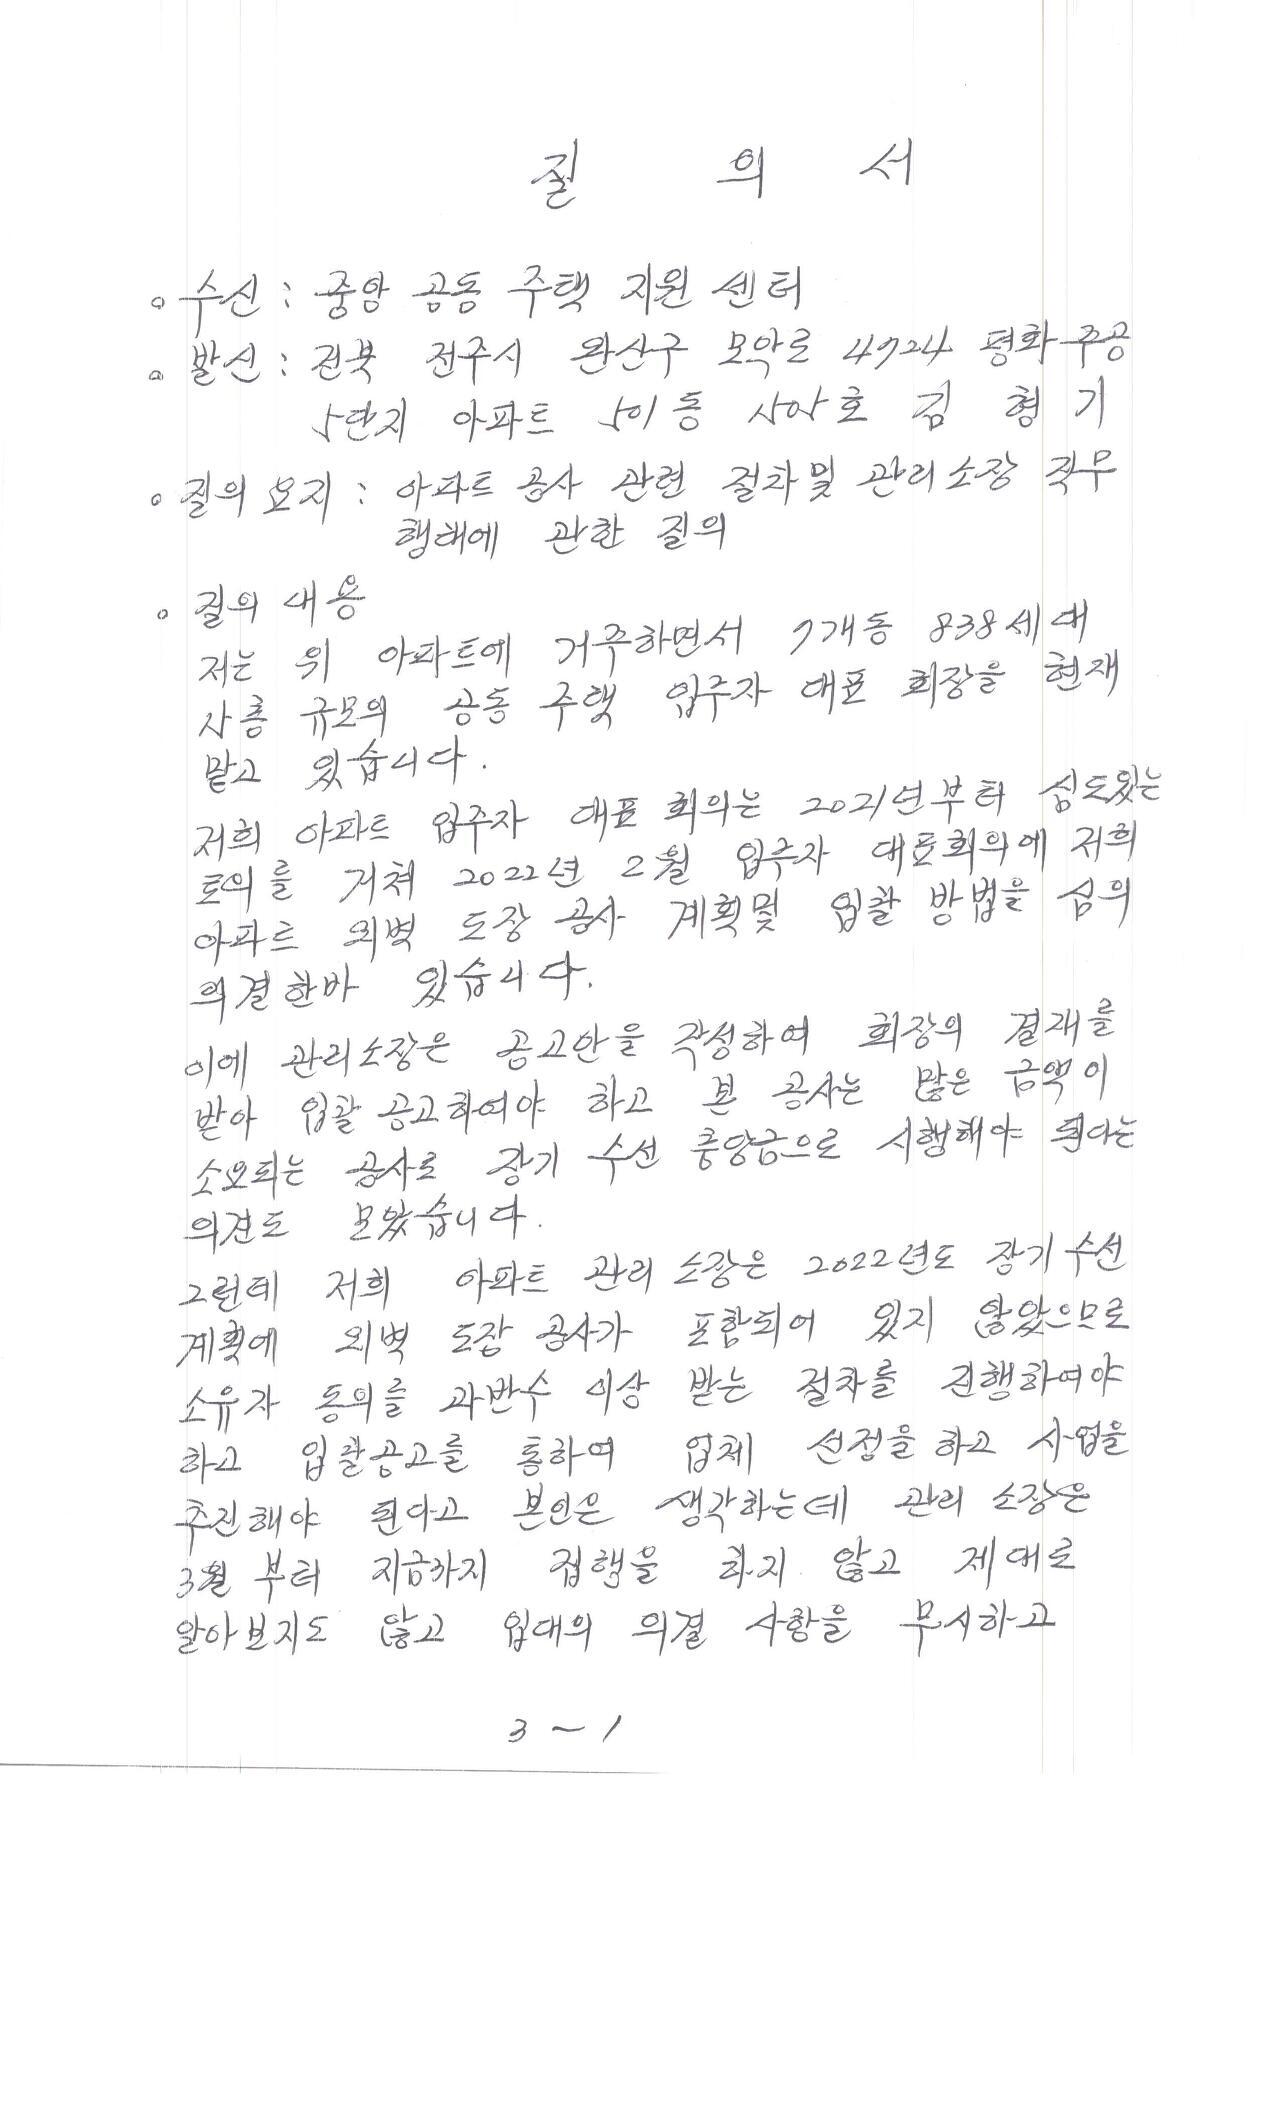 질 의 서
◦ 수신 : 중앙 공동 주택 지원 센터
◦ 발신 : 전북 전주시 완산구 모악로 4724 평화주공
5단지 아파트 호 김 형 기
◦ 질의 요지 : 아파트 공사 관련 절차및 관리소장 직무
행태에 관한 질의
◦ 질의 내용
저는 위 아파트에 거주하면서 7개동 838세대
사흥 규모의 공동 주택 입주자 대표 회장을 현재
맡고 있습니다.
저희 아파트 입주자 대표 회의는 2021년부터 심도있는
토의를 거쳐 2022년 2월 입주자 대표회의에 저희
아파트 외벽 도장 공사 계획및 입찰 방법을 심의
의결한바 있습니다.
이에 관리소장은 공고안을 작성하여 회장의 결재를
받아 입찰 공고하여야 하고 본 공사는 많은 금액이
소요되는 공사로 장기 수선 충당금으로 시행해야 된다는
의견도 모았습니다.
그런데 저희 아파트 관리 소장은 2022년도 장기수선
계획에 외벽 도장 공사가 포함되어 있지 않았으므로
소유자 동의를 과반수 이상 받는 절차를 진행하여야
하고 입찰공고를 통하여 업체 선정을 하고 사업을
추진해야 된다고 본인은 생각하는데 관리 소장은
3월 부터 지금까지 집행을 하지 않고 제대로
알아보지도 않고 입대의 의결 사항을 무시하고
3 ~ 1